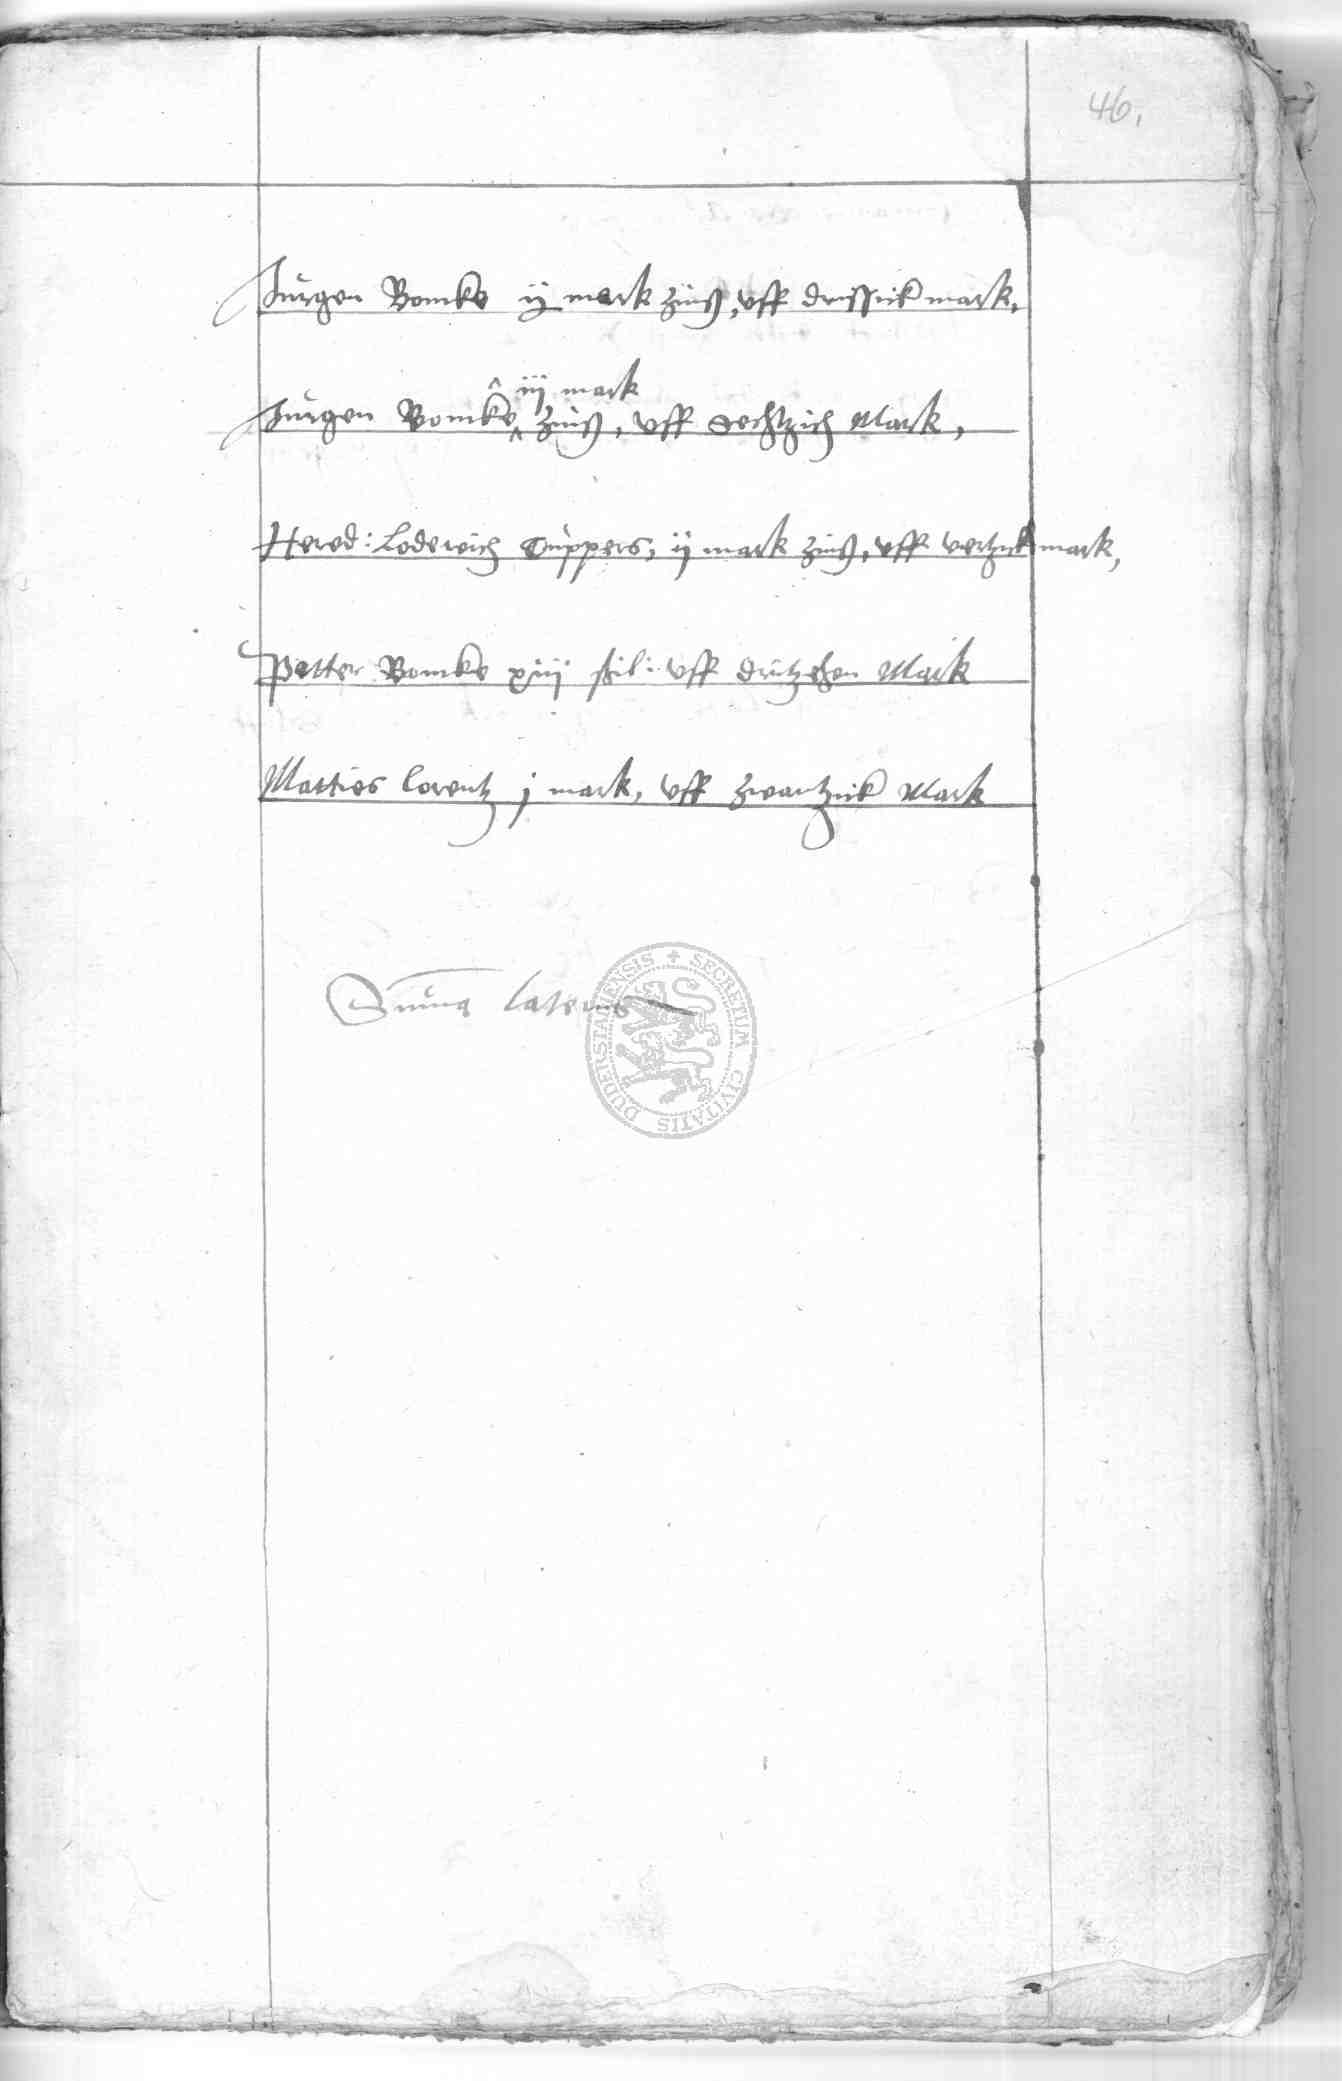 46.
Jurgen Bomke ij mark zinß, uff drissick mark,
iij mark
Jurgen Bomke zinß, uff sechtzich Mark,
Hered: Loderich Cuppers, ij mark zinß, uff vertzick mark,
Petter Bomke xiij shil: uff drutzehen Mark
Matties Lorentz j mark, uff zwantzick Mark
Suma lateris
SECRETUM CIVITATIS DUDERSTADIENSIS